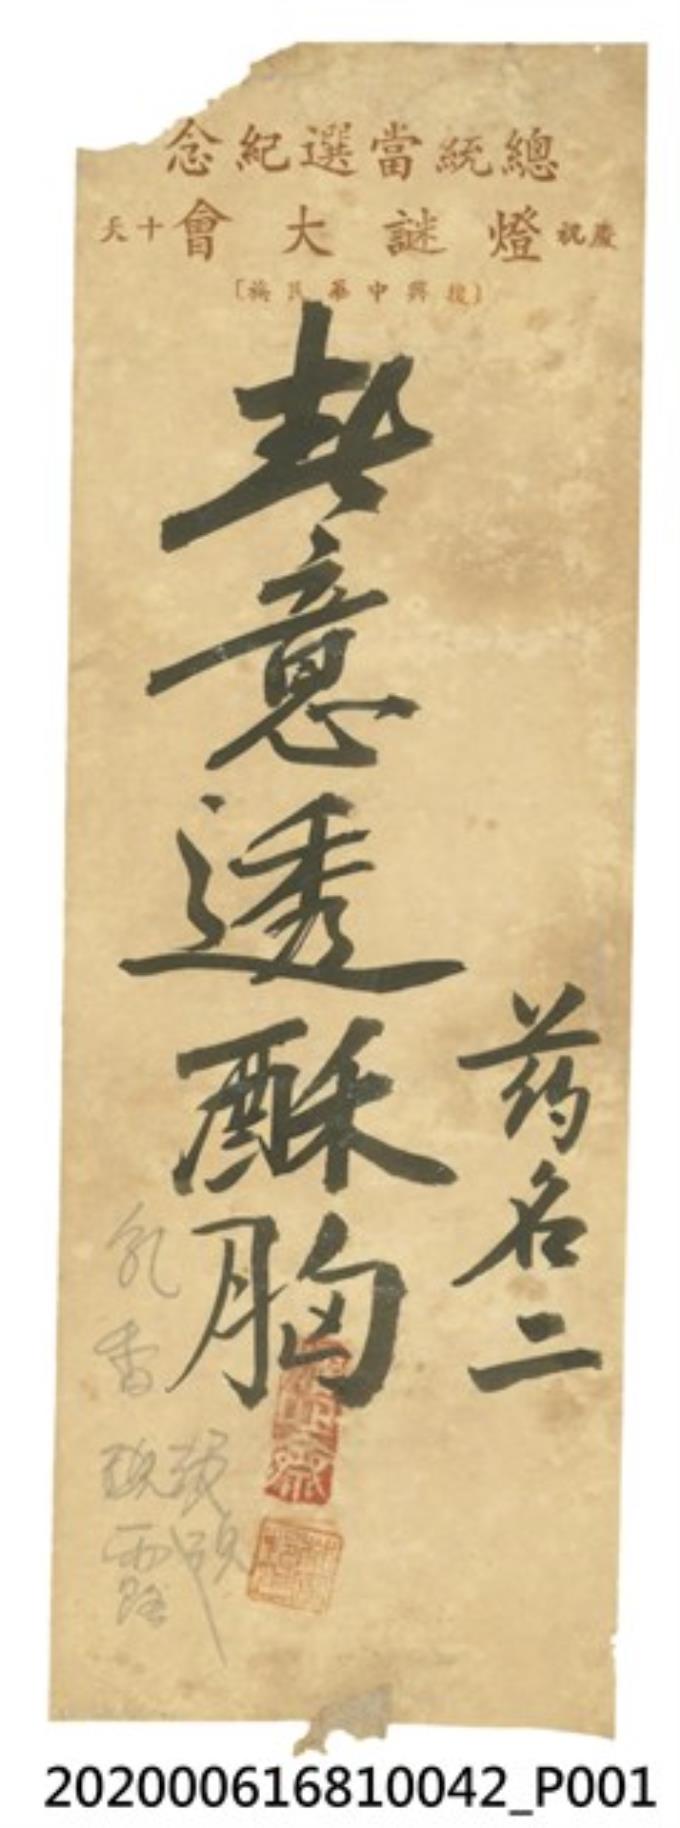 總統當選紀念
慶祝燈謎大會十天
(復興中華民族)
药名二
春意透酥胸
乳香
202000616810042_P001